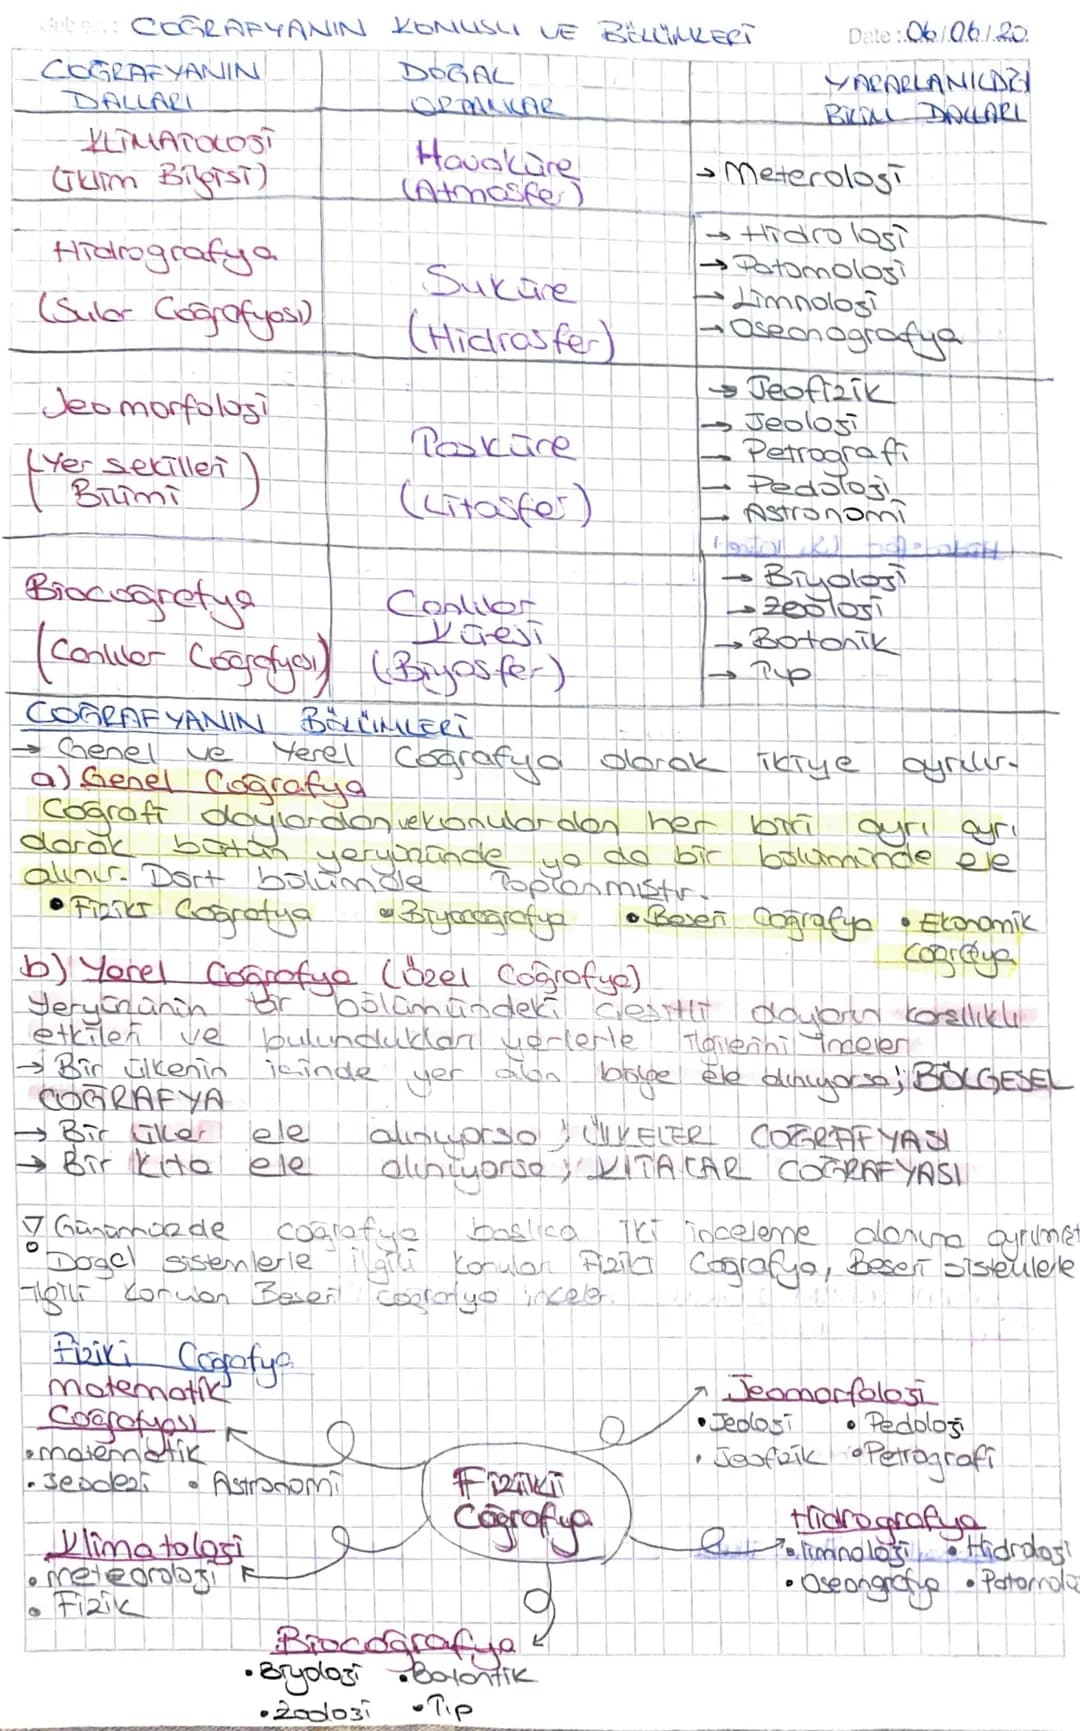 COĞRAFYANIN KONUSU VE BÖLÜMLERİ Date: 06/06/20.
COĞRAFYANIN DALLARI
DOĞAL ORTAMLAR
YARARLANILDIĞI BİLİM DALLARI
KLİMATOLOJİ
(İklim Bilgisi)
Havaküre
(Atmosfer)
→ Meteroloji
Hidrografya
(Sular Coğrafyası)
Suküre
(Hidrosfer)
→ Hidroloji
→ Potomoloji
→ Limnoloji
→ Oseonografya
Jeomorfoloji
(Yer Şekilleri Bilimi)
Taşküre
(Litosfer)
→ Jeofizik
→ Jeoloji
→ Petrografi
→ Pedoloji
→ Astronomi
Biocoğrafya
(Canlılar Coğrafyası)
Canlılar
Küresi
(Biyosfer)
→ Biyoloji
→ Zooloji
→ Botanik
→ Tıp
COĞRAFYANIN BÖLÜMLERİ
→ Genel ve Yerel Coğrafya olarak ikiye ayrılır.
a) Genel Coğrafya
Coğrafi olaylardan ve konulardan her biri ayrı ayrı
olarak bütün yeryüzünde ya da bir bölümünde ele
alınır. Dört bölümde toplanmıştır.
• Fiziki Coğrafya • Biyocoğrafya • Beşeri Coğrafya • Ekonomik
Coğrafya
b) Yerel Coğrafya (Özel Coğrafya)
Yeryüzünün bir bölümündeki çeşitli olayların karşılıklı
etkileri ve bulundukları yerlerle ilgilerini inceler
→ Bir ülkenin içinde yer alan bölge ele alınıyorsa; BÖLGESEL
COĞRAFYA
→ Bir ülker ele alınıyorsa; ÜLKELER COĞRAFYASI
→ Bir kıta ele alınıyorsa; KITALAR COĞRAFYASI
Günümüzde coğrafya başlıca iki inceleme alanına ayrılmıştı
Doğal sistemlerle ilgili konuları Fiziki Coğrafya, Beşeri sistemlerle
ilgili konuları Beşeri coğrafya inceler.
Fiziki Coğrafya
Matematik
Coğrafyası
• matematik
• Jeodezi • Astronomi
Jeomorfoloji
• Jeoloji • Pedoloji
• Jeofizik • Petrografi
Fiziki
Coğrafya
Klimatoloji
• meteoroloji
• Fizik
Hidrografya
• limnoloji • Hidroloji
• Oseongrafya • Potomolo
Biocoğrafya
• Biyoloji • Botontik
• Zooloji • Tıp